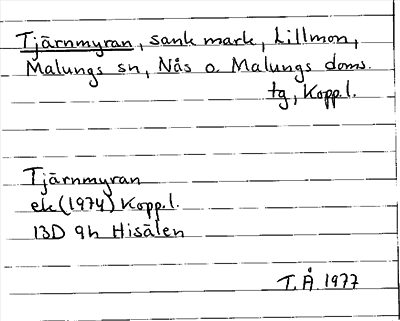 Tjärnmyran, sank mark, Lillmon,
Malungs sn, Nås o. Malungs doms.
tg, Kopp.l.
Tjärnmyran
ek (1974) Kopp.l.
13D 9h Hisälen
T. Å 1977